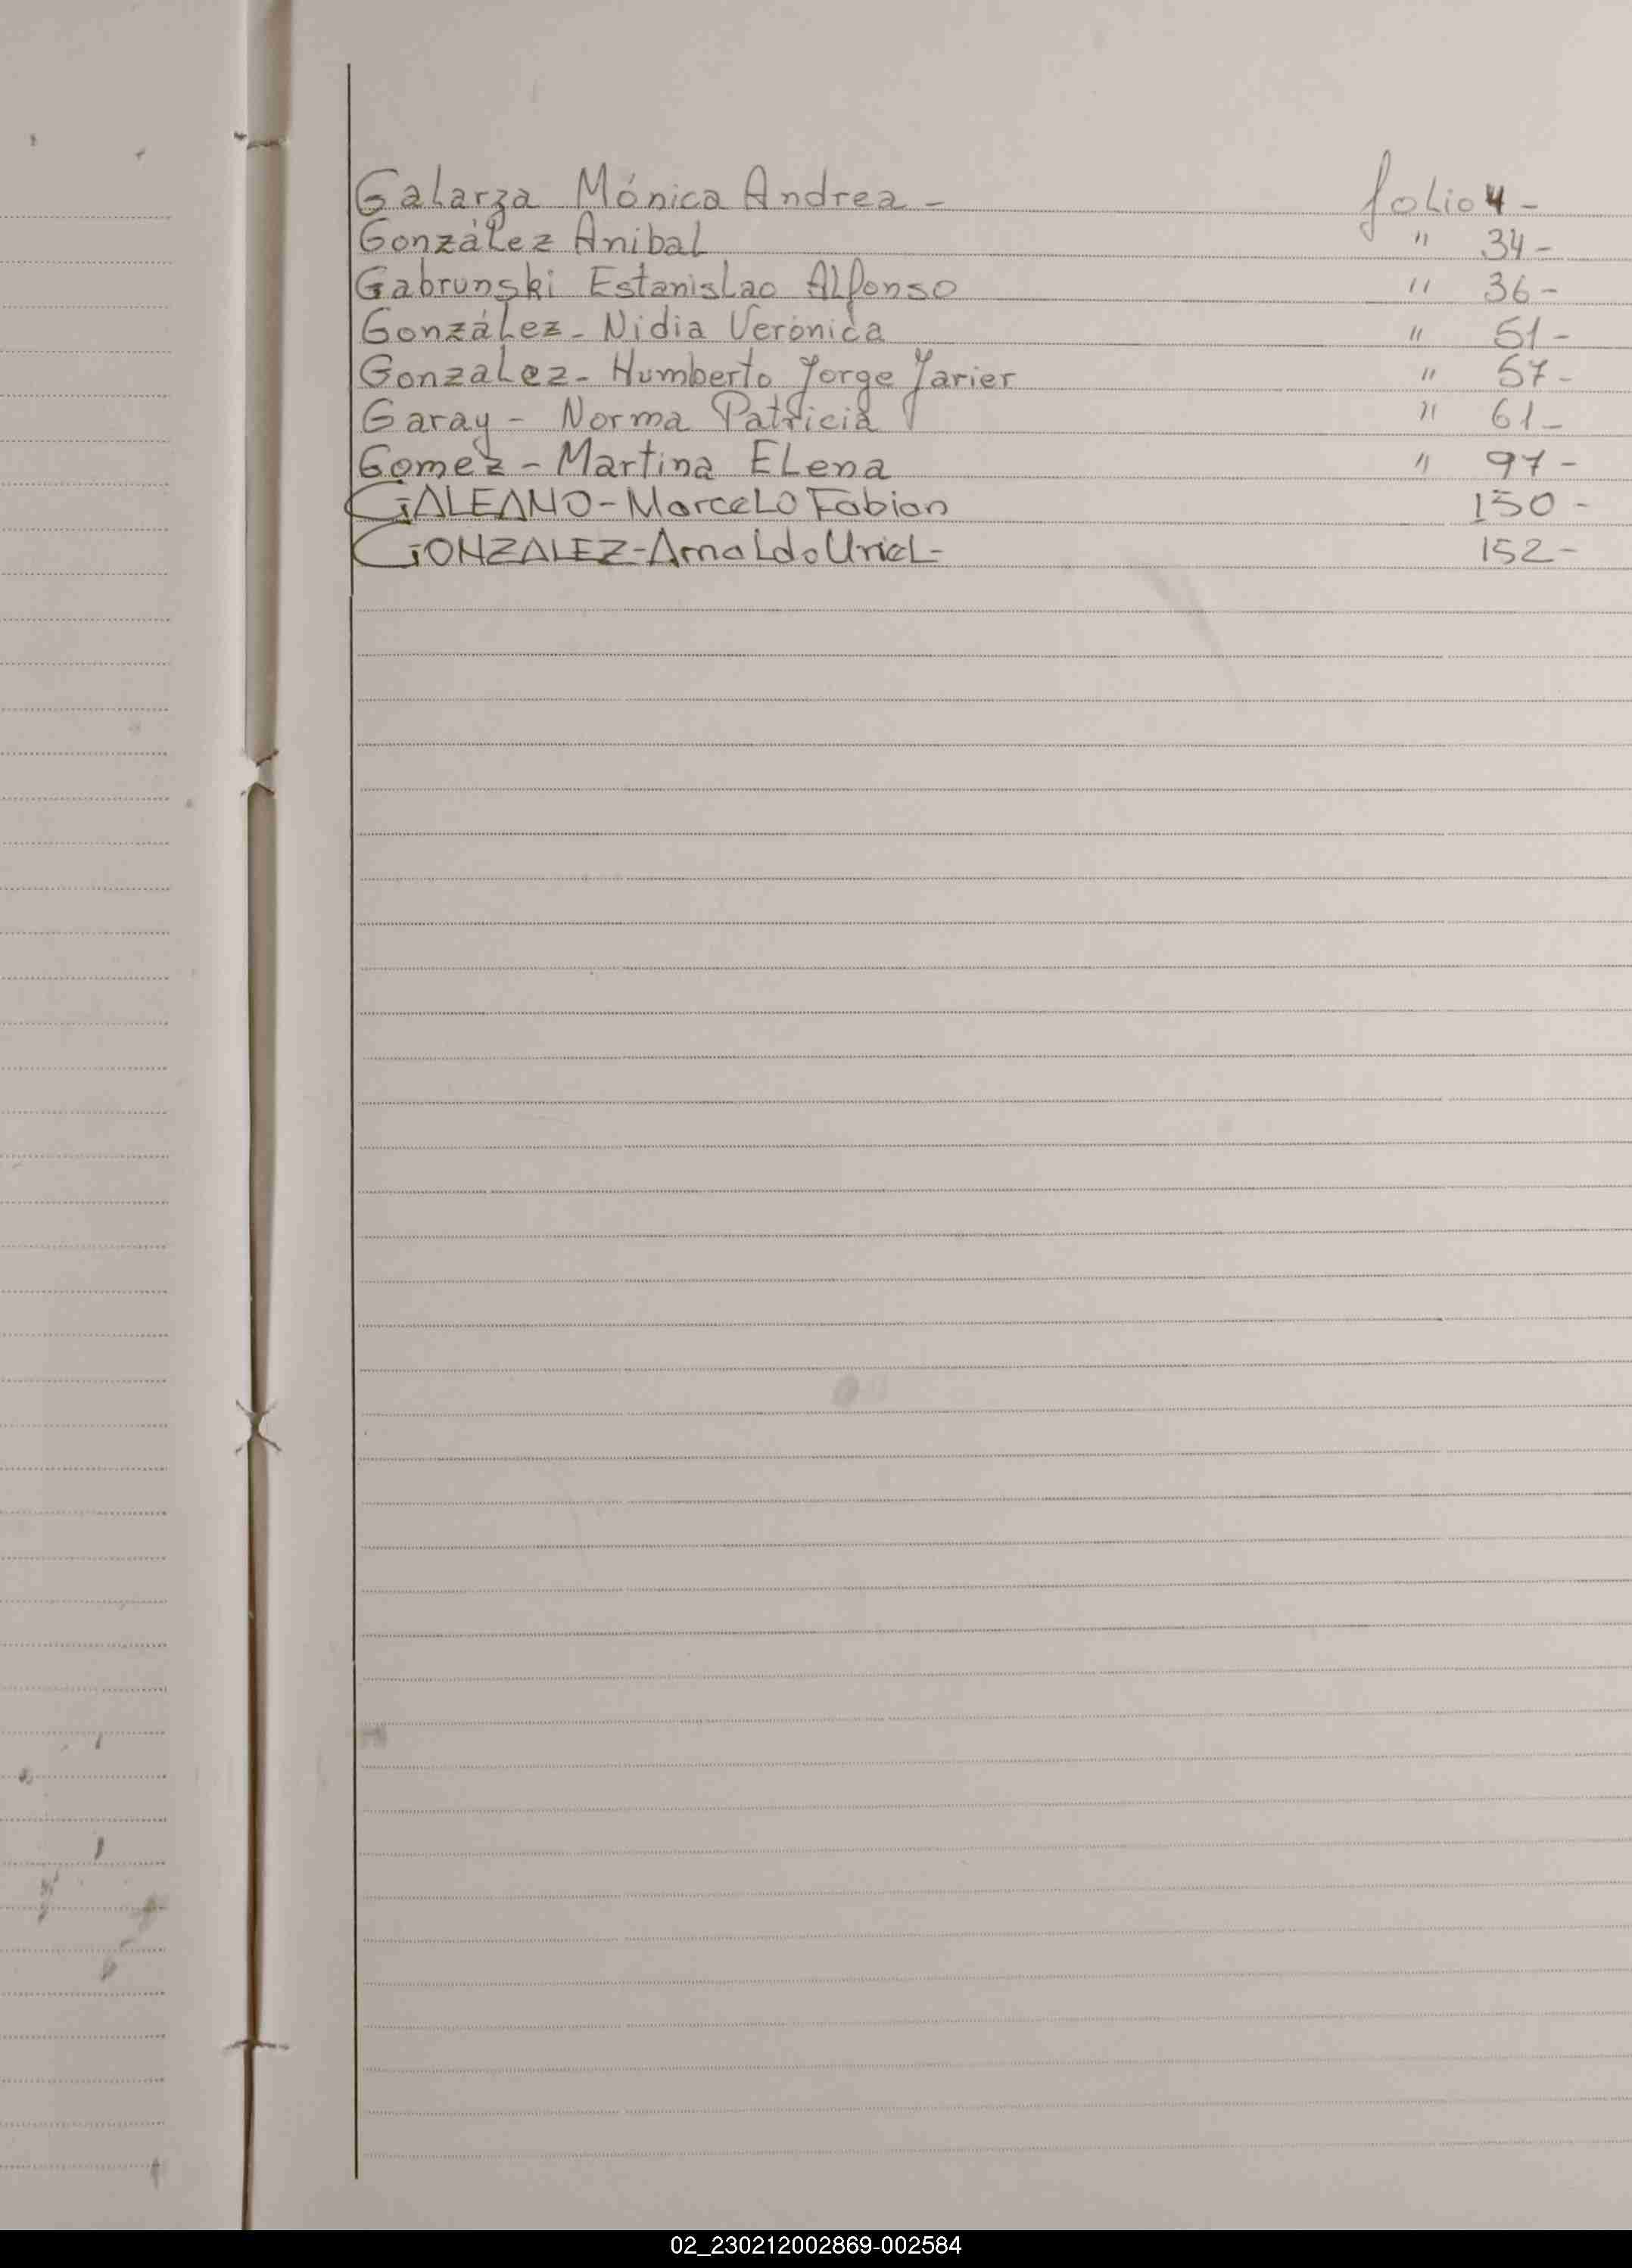 Galarza Mónica Andrea - folio 4 -
González Anibal " 34 -
Gabrunski Estanislao Alfonso " 36 -
González - Nidia Verónica " 51 -
Gonzalez - Humberto Jorge Javier " 57 -
Garay - Norma Patricia " 61 -
Gomez - Martina Elena " 97 -
GALEANO - Marcelo Fabian 150 -
GONZALEZ - Arnaldo Uriel - 152 -
02_230212002869-002584